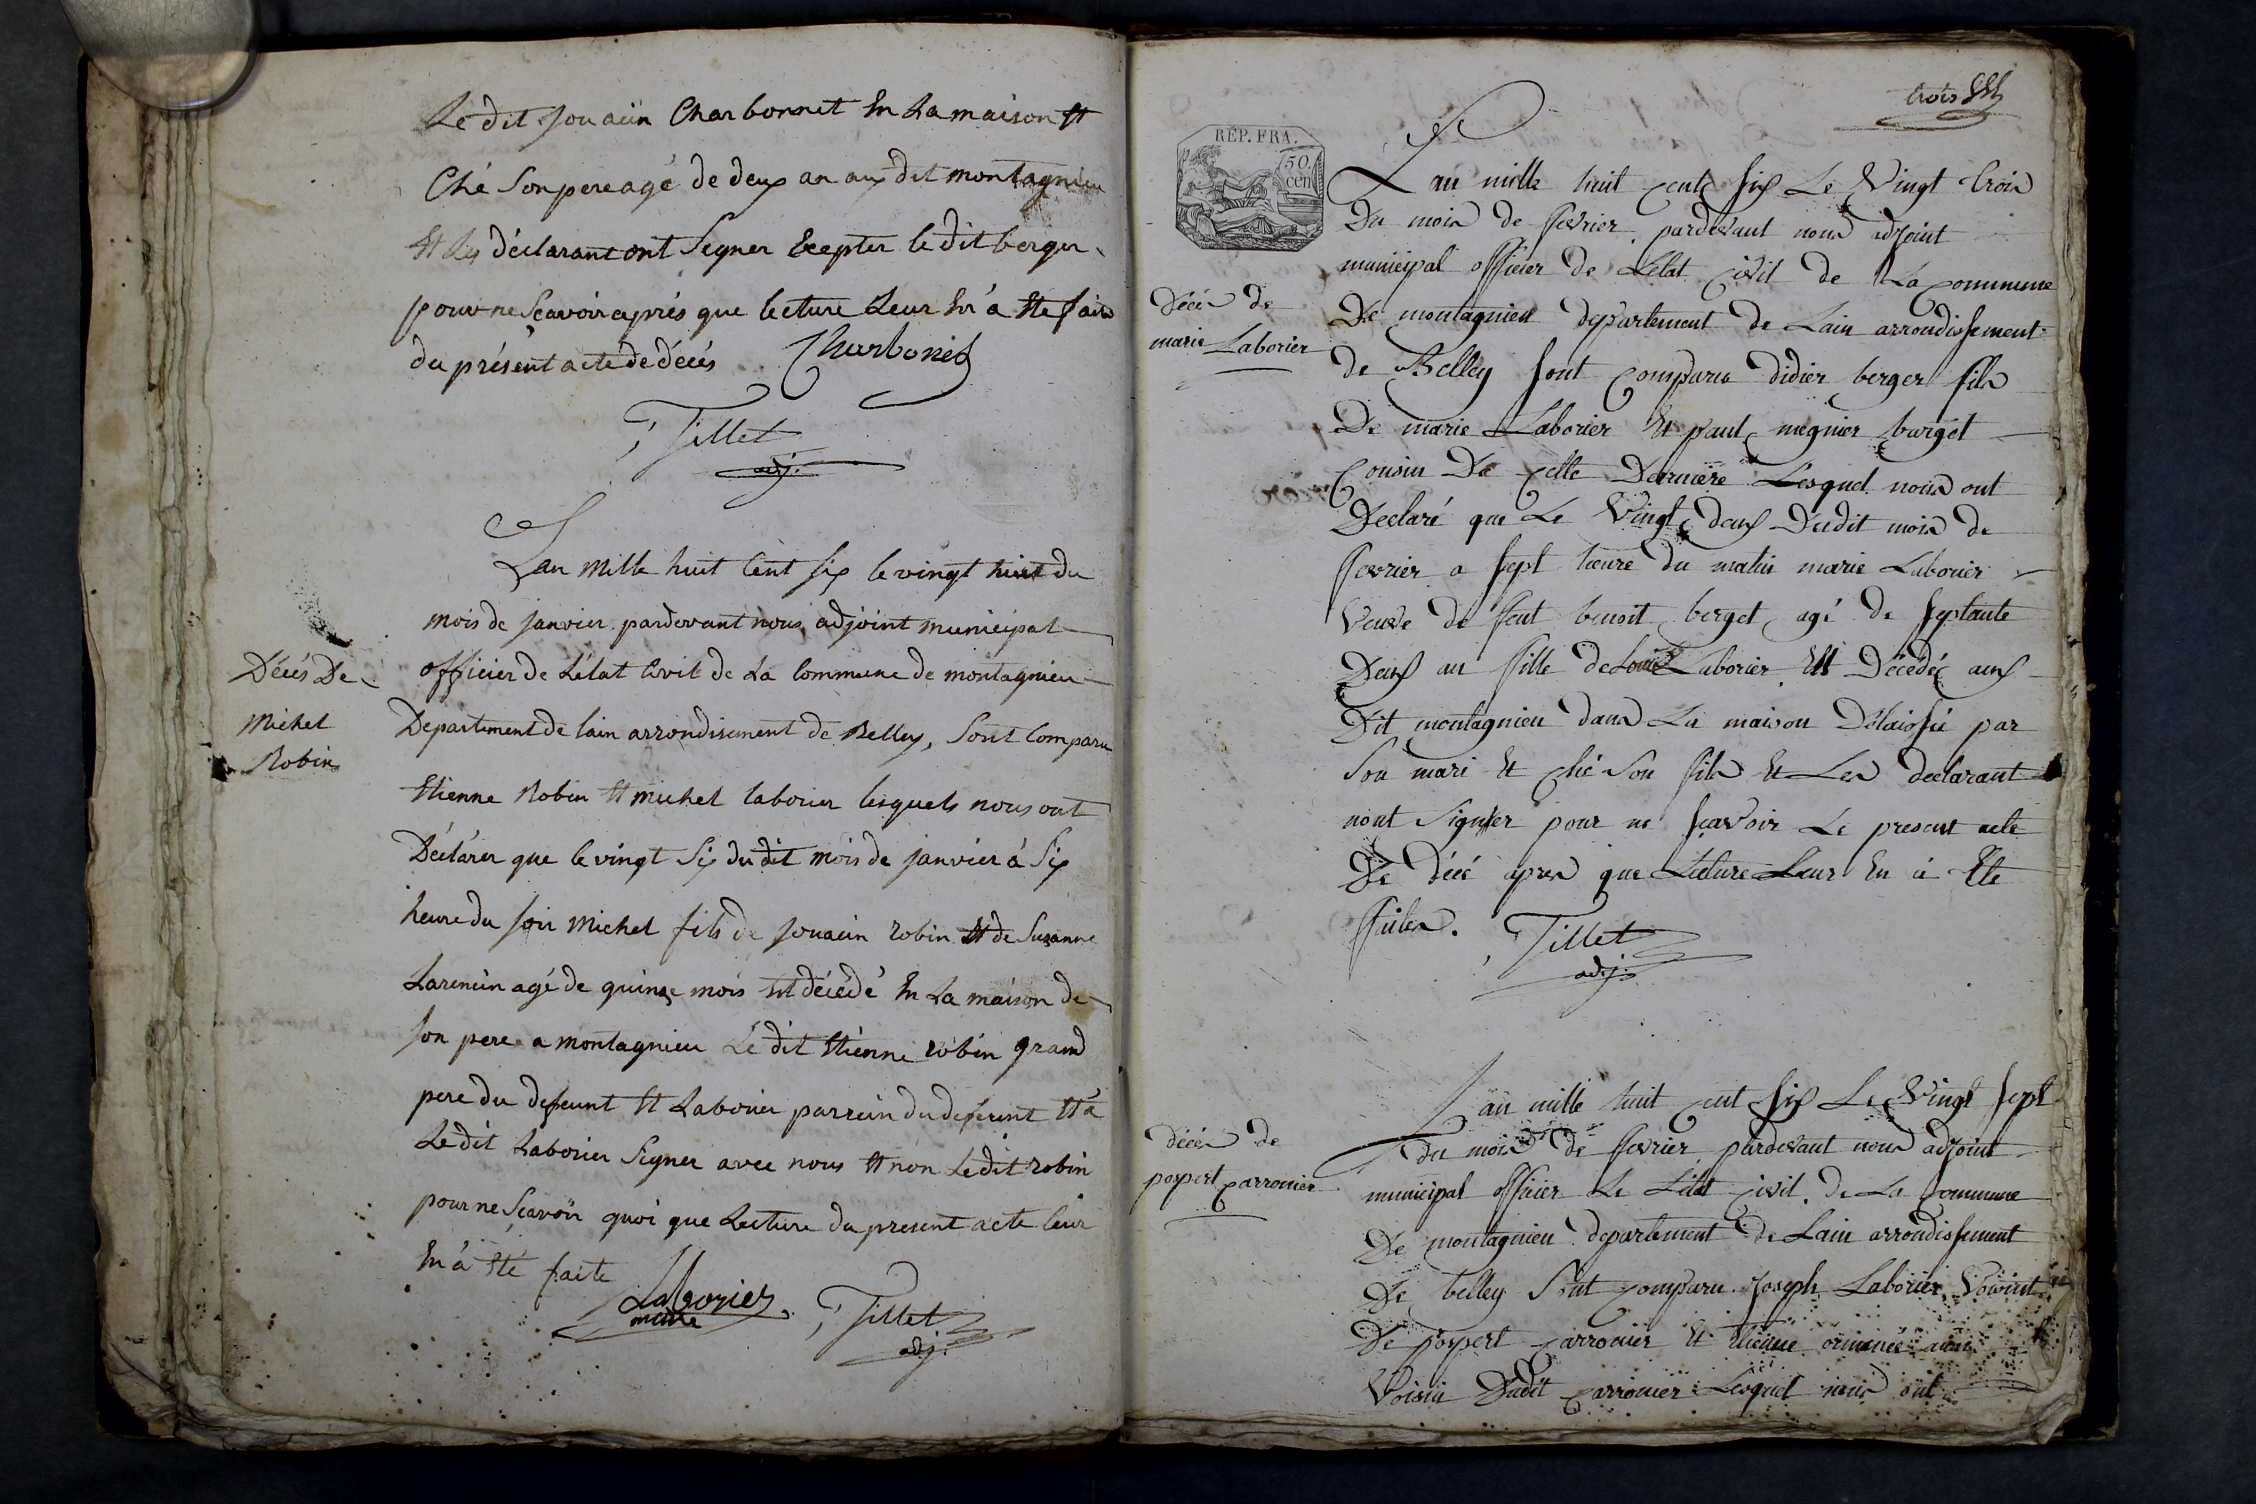 Le dit Jouaiin Charbonnet En La maison Et
Ché Son pere agé de deux an aux dit montagnieu
Et Les déclarant ont Signer Exepter le dit berger
pour ne Sçavoir aprés que lecture Leur En á Ete faite
du présent acte de décés Charbonet
Tillet
adj.
Lan mille huit Cent Six le vingt huit du
mois de janvier pardevant nous, adjoint municipal
officier de L'état Civil de La Commune de montagnieu
Décés De
Michel
Robin
Departement de lain arrondisement de Belley, Sont Comparu
Etienne Robin Et michel laborier lesquels nous ont
Déclárer que le vingt Six du dit mois de janvier á Six
heure du Soir Michel fils de Jouaiin robin Et de Suzanne
agé de quinze mois Est décédé En La maison de
Son pere a montagnieu Le dit Etienne robin grand
pere du defeunt Et Laborier parrein du defeunt Et á
Le dit Laborier Signer avec nous Et non Le dit robin
pour ne Sçavoir quoi que Lecture du present acte leur
En á Eté faite
Laborier
maire
Tillet
adj.
trois
RÉP. FRA.
50
cen
Lan mille huit cent Six Le Vingt trois
Du mois de fevrier pardevant nous adjoint
municipal officier de Létat civil de La commune
Décés de
marie Laborier
De montagnieu departement de Lain arrondissement
de Belley Sont comparu didier berger fils
De marie Laborier Et paul mégnier burget
Cousin De celle Derniere Lesquel nous ont
Declaré que Le Vingt deux Dudit mois de
fevrier a Sept heure du matin marie Laborier
Veuve de feut benoit berget agé de Septante
Deux an fille de Louis Laborier Est Décédée aux
Dit montagnieu dans La maison Délaissé par
Son mari Et ché Son fils Et Les declarant
nont Signier pour ne Sçavoir Le present acte
De décé apres que Lecture Leur En á Ete
faites.
Tillet
adj.
Lan mille huit cent Six Le Vingt Sept
du mois de fevrier pardevant nous adjoint
décés de
pospert carronier
municipal officier de Létat civil de La Commune
De montagnieu departement de Lain arrondissement
De belley Sont comparu joseph Laborier Voisint
De pospert carronier Et Etienne aussi
Voisin Dudit carronier Lesquel nous ont